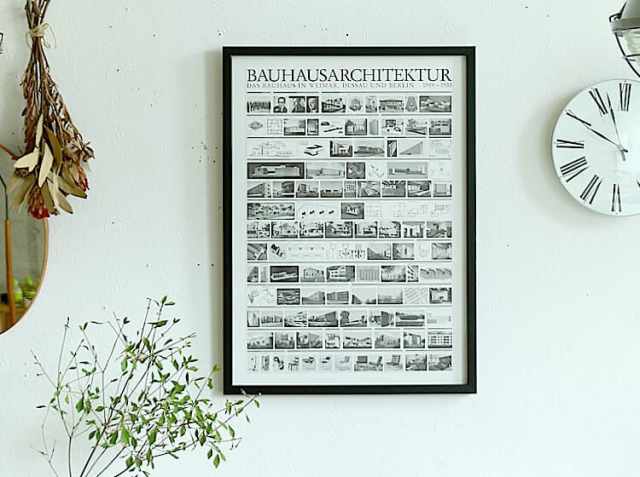 BAUHAUSARCHITEKTUR
DAS BAUHAUS IN WEIMAR, DESSAU UND BERLIN · 1919 – 1933